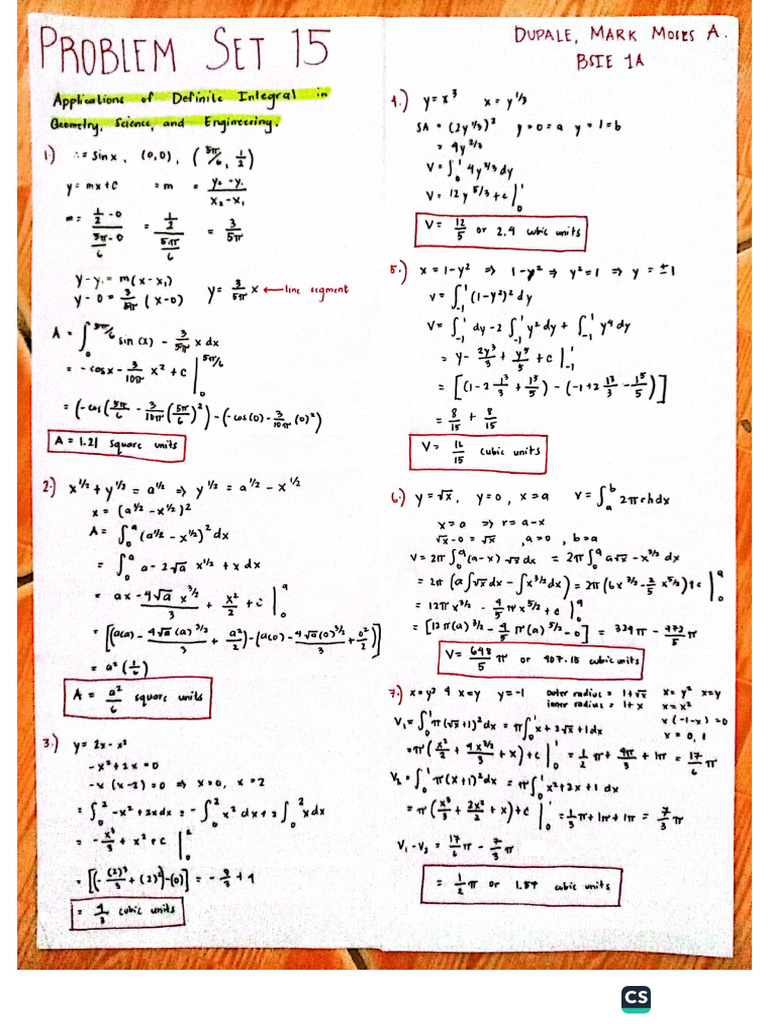 PROBLEM SET 15
DUPALE, MARK MOISES A.
BSIE 1A
Applications of Definite Integral in
Geometry, Science, and Engineering.
1.) ∴ = sin x, (0,0), (5π/6, 1/2)
y = mx + C = m = y₂-y₁ / x₂-x₁
m = (1/2 - 0)/(5π/6 - 0) = (1/2)/(5π/6) = 3/5π
y - y₁ = m(x - x₁)
y - 0 = 3/5π (x - 0) y = 3/5π x ← line segment
A = ∫₀^5π/6 sin(x) - 3/5π x dx
= -cos x - 3/10π x² + C |₀^5π/6
= (-cos(5π/6 - 3/10π (5π/6)²) - (-cos(0) - 3/10π (0)²)
A = 1.21 square units
2.) x^1/2 + y^1/2 = a^1/2 ⇒ y^1/2 = a^1/2 - x^1/2
x = (a^1/2 - x^1/2)²
A = ∫₀^a (a^1/2 - x^1/2)² dx
= ∫₀^a a - 2√a x^1/2 + x dx
= ax - 4√a x^3/2 / 3 + x²/2 + C |₀^a
= [(a(a) - 4√a (a)^3/2 / 3 + a²/2) - (a(0) - 4√a(0)^3/2 / 3 + 0²/2)]
= a² (1/6)
A = a²/6 square units
3.) y = 2x - x²
-x² + 2x = 0
-x (x-2) = 0 ⇒ x = 0, x = 2
= ∫₀² -x² + 2x dx = -∫₀² x² dx + 2∫₀² x dx
= -x³/3 + x² + C |₀²
= [(-(2)³/3 + (2)²) - (0)] = -8/3 + 4
= 4/3 cubic units
4.) y = x³ x = y^1/3
SA = (2y^1/3)² y = 0 = a y = 1 = b
= 4y^2/3
V = ∫₀¹ 4y^2/3 dy
V = 12y^5/3 + C |₀¹
V = 12/5 or 2.4 cubic units
5.) x = 1 - y² ⇒ 1 - y² ⇒ y² = 1 ⇒ y = ±1
V = ∫₋₁¹ (1-y²)² dy
V = ∫₋₁¹ dy - 2∫₋₁¹ y² dy + ∫₋₁¹ y⁴ dy
= y - 2y³/3 + y⁵/5 + C |₋₁¹
= [(1 - 2 1³/3 + 1⁵/5) - (-1 + 2 1³/3 - 1⁵/5)]
= 8/15 + 8/15
V = 16/15 cubic units
6.) y = √x, y = 0, x = a V = ∫ₐᵇ 2πrh dx
x = a ⇒ r = a - x
√x - 0 = √x , a = 0, b = a
V = 2π∫₀^a (a-x) √x dx = 2π∫₀^a a√x - x^3/2 dx
= 2π (a∫√x dx - ∫x^3/2 dx) = 2π (6x^3/2 - 2/5 x^5/2) + C |₀^a
= 12πx^3/2 - 4/5 πx^5/2 + C |₀^a
= [12π(a)^3/2 - 4/5 π(a)^5/2 - 0] = 324π - 972/5 π
V = 648/5 π or 407.15 cubic units
7.) x = y² & x = y y = -1 outer radius = 1+√x x = y² x = y
inner radius = 1 + x x = x²
V₁ = ∫₀¹ π(√x + 1)² dx = π∫₀¹ x + 2√x + 1 dx x(-1-x) = 0
x = 0, 1
= π(x²/2 + 4x^3/2 / 3 + x) + C |₀¹ = 1/2 π + 4π/3 + 1π = 17/6 π
V₂ = ∫₀¹ π(x+1)² dx = π∫₀¹ x² + 2x + 1 dx
= π(x³/3 + 2x²/2 + x) + C |₀¹ = 1/3 π + 1π + 1π = 7/3 π
V₁ - V₂ = 17/6 π - 7/3 π
= 1/2 π or 1.57 cubic units
CS